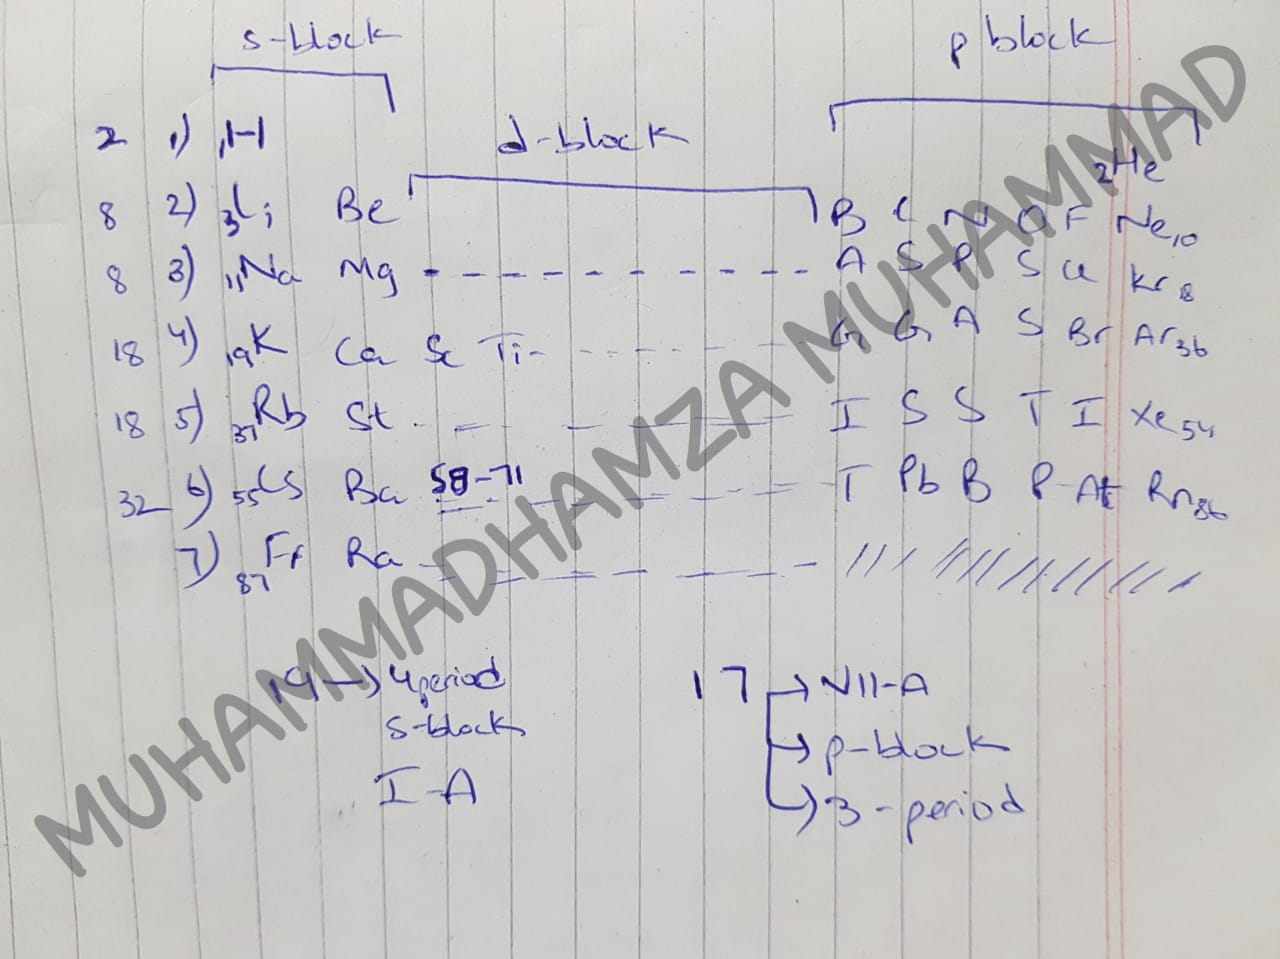 s-block p block
2 1) ₁H d-block ₂He
8 2) ₃Li Be B C N O F Ne₁₀
8 3) ₁₁Na Mg - - - - - - - - - A S P S Cl Kr₁₈
18 4) ₁₉K Ca Sc Ti - - - - - - G G A S Br Ar₃₆
18 5) ₃₇Rb St - - - - - - I S S T I Xe₅₄
32 6) ₅₅Cs Ba 58-71 - - - - T Pb B P At Rn₈₆
7) ₈₇Fr Ra - - - - - - - / / / / / / / / / / / /
19 → 4 period
s-block
I-A
17 → VII-A
→ p-block
→ 3-period
MUHAMMADHAMZA MUHAMMAD